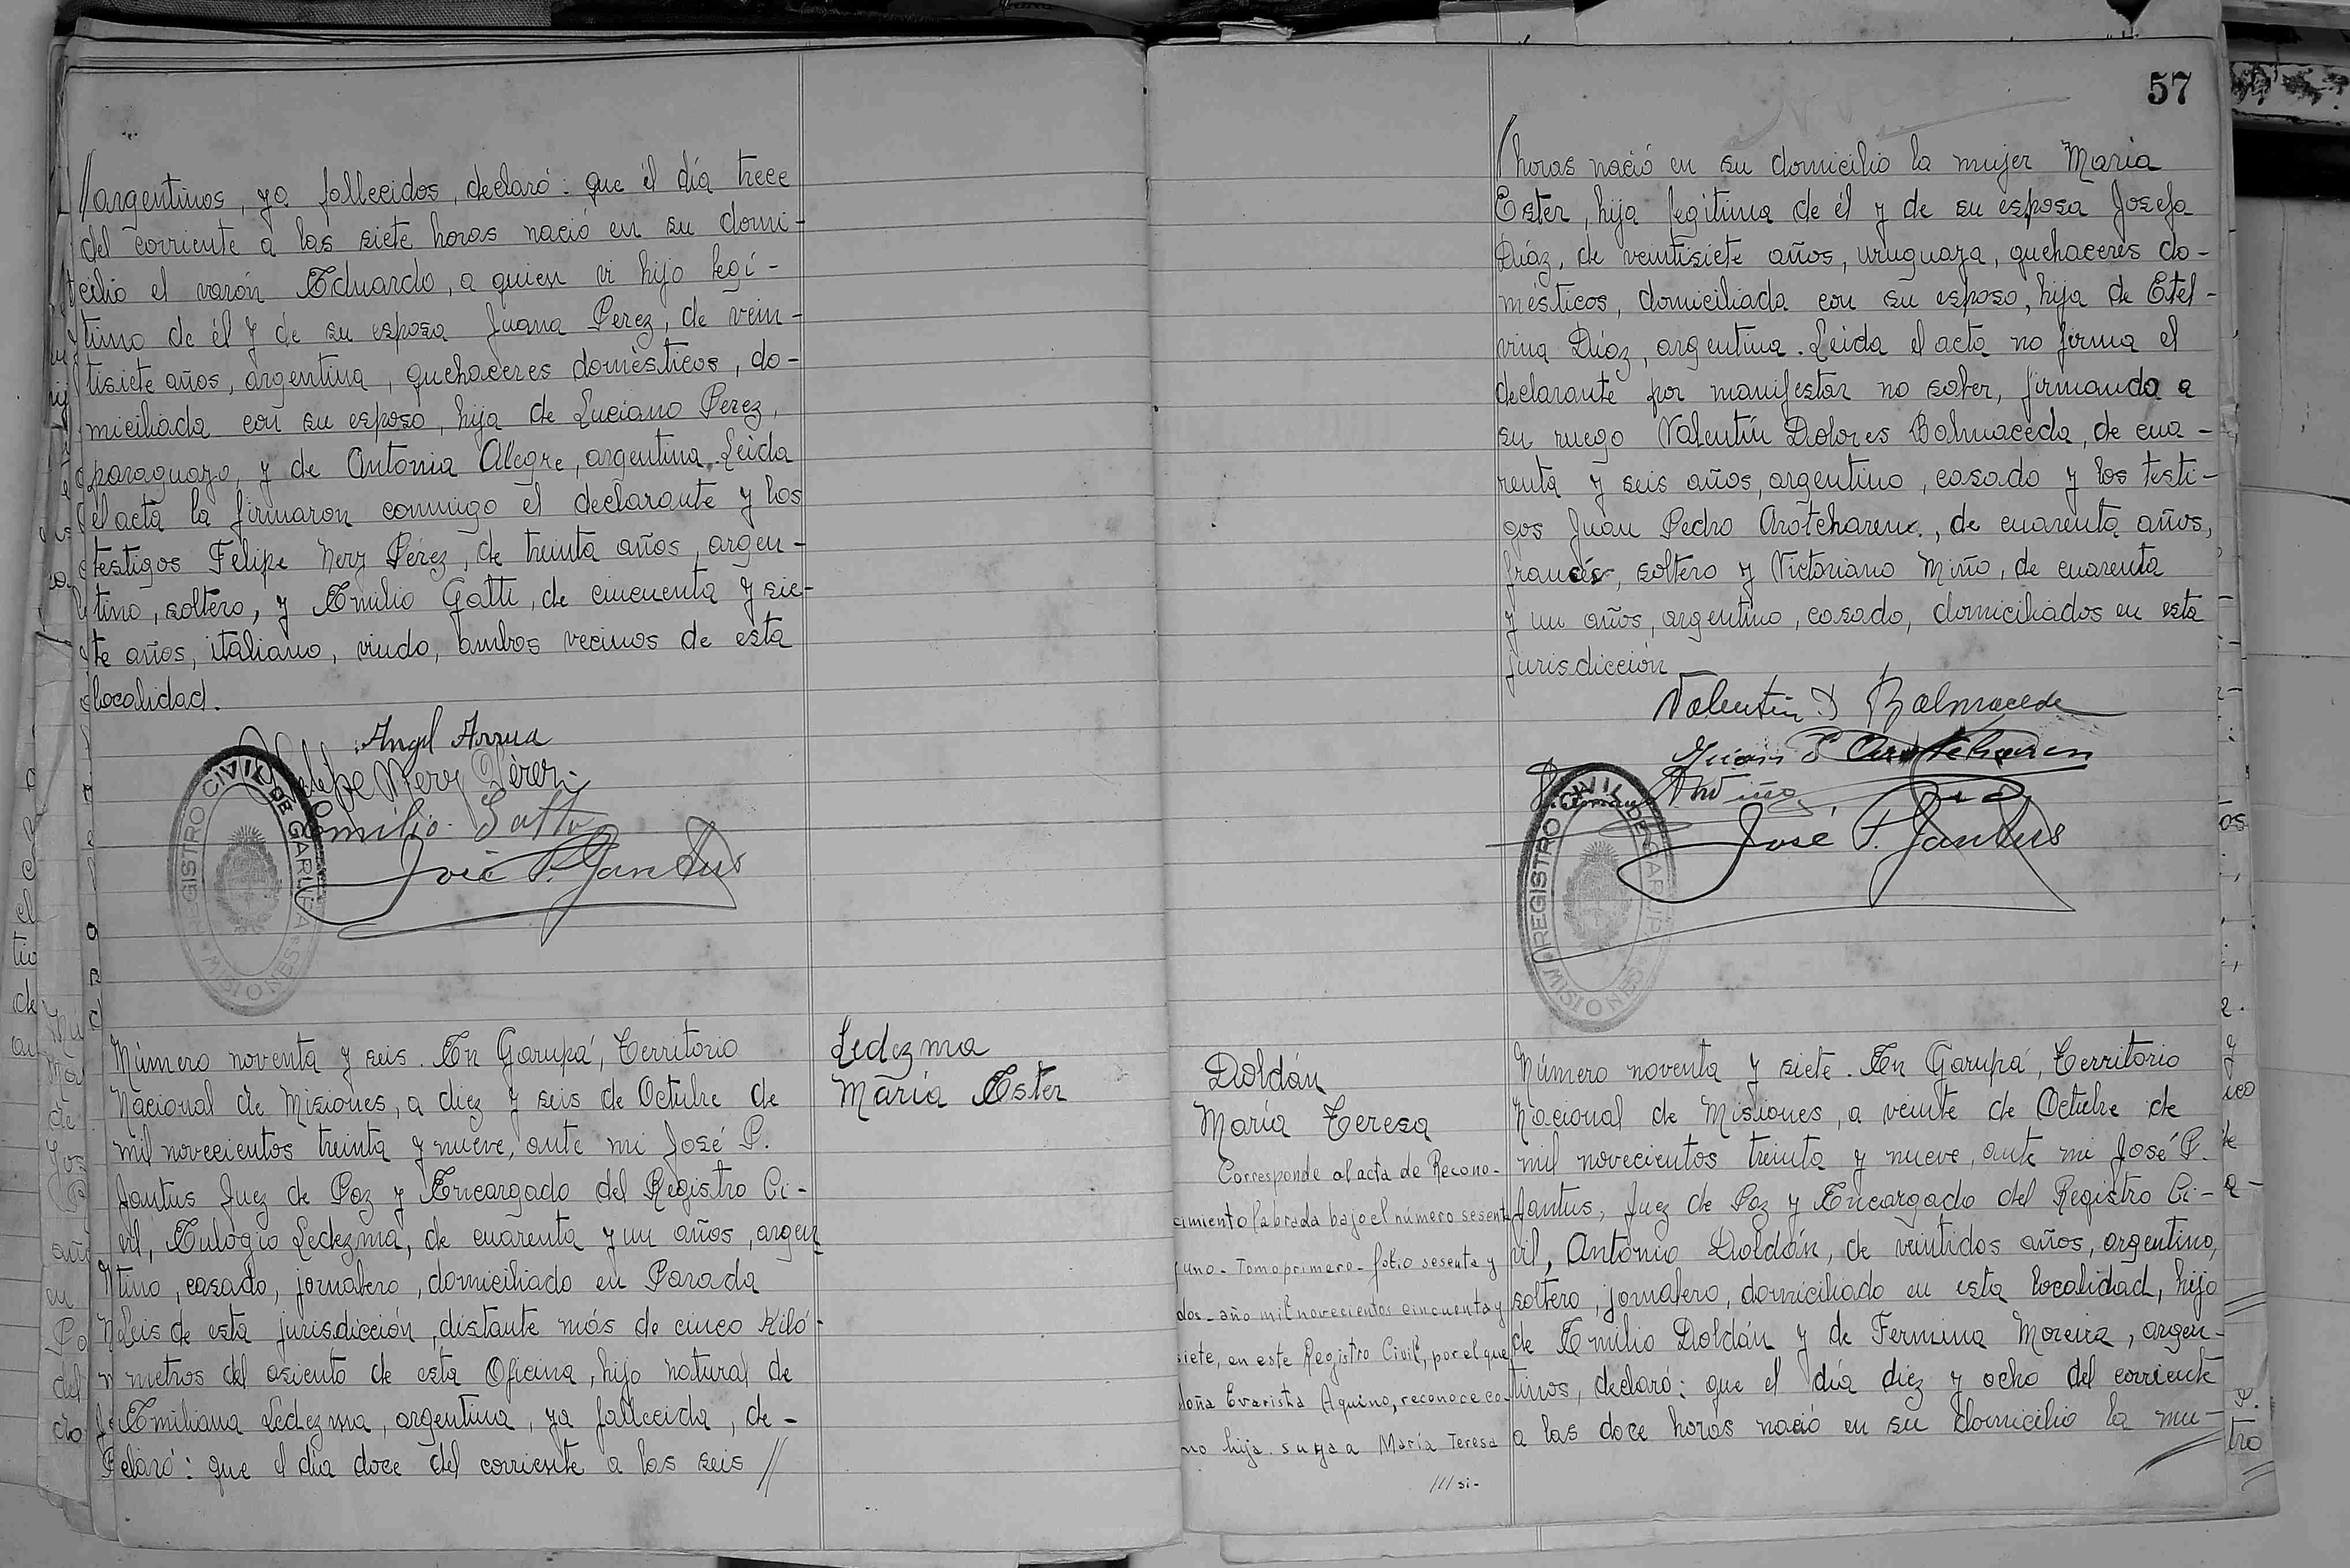 //argentinos, ya fallecidos, declaró: que el día trece
del corriente a las siete horas nació en su domi-
cilio el varón Eduardo, a quien vi hijo legí-
timo de él y de su esposa Juana Perez, de vein-
tisiete años, argentina, quehaceres domésticos, do-
miciliada con su esposo, hija de Luciano Perez,
paraguayo, y de Antonia Alegre, argentina. Leida
el acta la firmaron conmigo el declarante y los
testigos Felipe Nery Pérez, de treinta años, argen-
tino, soltero, y Emilio Gatti, de cincuenta y sie-
te años, italiano, viudo, ambos vecinos de esta
localidad.
Angel Arrua
Felipe Nery Pérez
Emilio Gatti
José P. Jantus
REGISTRO CIVIL DE GARUPA
MISIONES
Número noventa y seis. En Garupá, Territorio
Nacional de Misiones, a diez y seis de Octubre de
mil novecientos treinta y nueve, ante mi José P.
Jantus Juez de Paz y Encargado del Registro Ci-
vil, Eulogio Ledezma, de cuarenta y un años, argen
tino, casado, jornalero, domiciliado en Parada
Leis de esta jurisdicción, distante más de cinco kiló-
metros del asiento de esta Oficina, hijo natural de
Emiliana Ledezma, argentina, ya fallecida, de-
claró: que el día doce del corriente a las seis //
Ledezma
María Ester
57
/horas nació en su domicilio la mujer Maria
Ester, hija legitima de él y de su esposa Josefa
Díaz, de veintisiete años, uruguaya, quehaceres do-
mésticos, domiciliada con su esposo, hija de Etel-
vina Díaz, argentina. Leida el acta no firma el
declarante por manifestar no saber, firmando a
su ruego Valentín Dolores Balmaceda, de cua-
renta y seis años, argentino, casado y los testi-
gos Juan Pedro Arotcharen, de cuarenta años,
francés, soltero y Victoriano Miño, de cuarenta
y un años, argentino, casado, domiciliados en esta
jurisdicción
Valentin D Balmaceda
Juan P Arotcharen
Miño
José P. Jantus
REGISTRO CIVIL DE GARUPA
MISIONES
Doldán
María Teresa
Corresponde al acta de Recono-
cimiento labrada bajo el número sesenta
y uno - Tomo primero - folio sesenta y
dos - año mil novecientos cincuenta y
siete, en este Registro Civil, por el que
doña Evarista Aquino, reconoce co-
mo hija suya a María Teresa
/// si-
Número noventa y siete. En Garupá, Territorio
Nacional de Misiones, a veinte de Octubre de
mil novecientos treinta y nueve, ante mi José P.
Jantus, Juez de Paz y Encargado del Registro Ci-
vil, Antonio Doldán, de veintidos años, argentino,
soltero, jornalero, domiciliado en esta localidad, hijo
de Emilio Doldán y de Fermina Moreira, argen-
tinos, declaró: que el día diez y ocho del corriente
a las doce horas nació en su domicilio la mu-